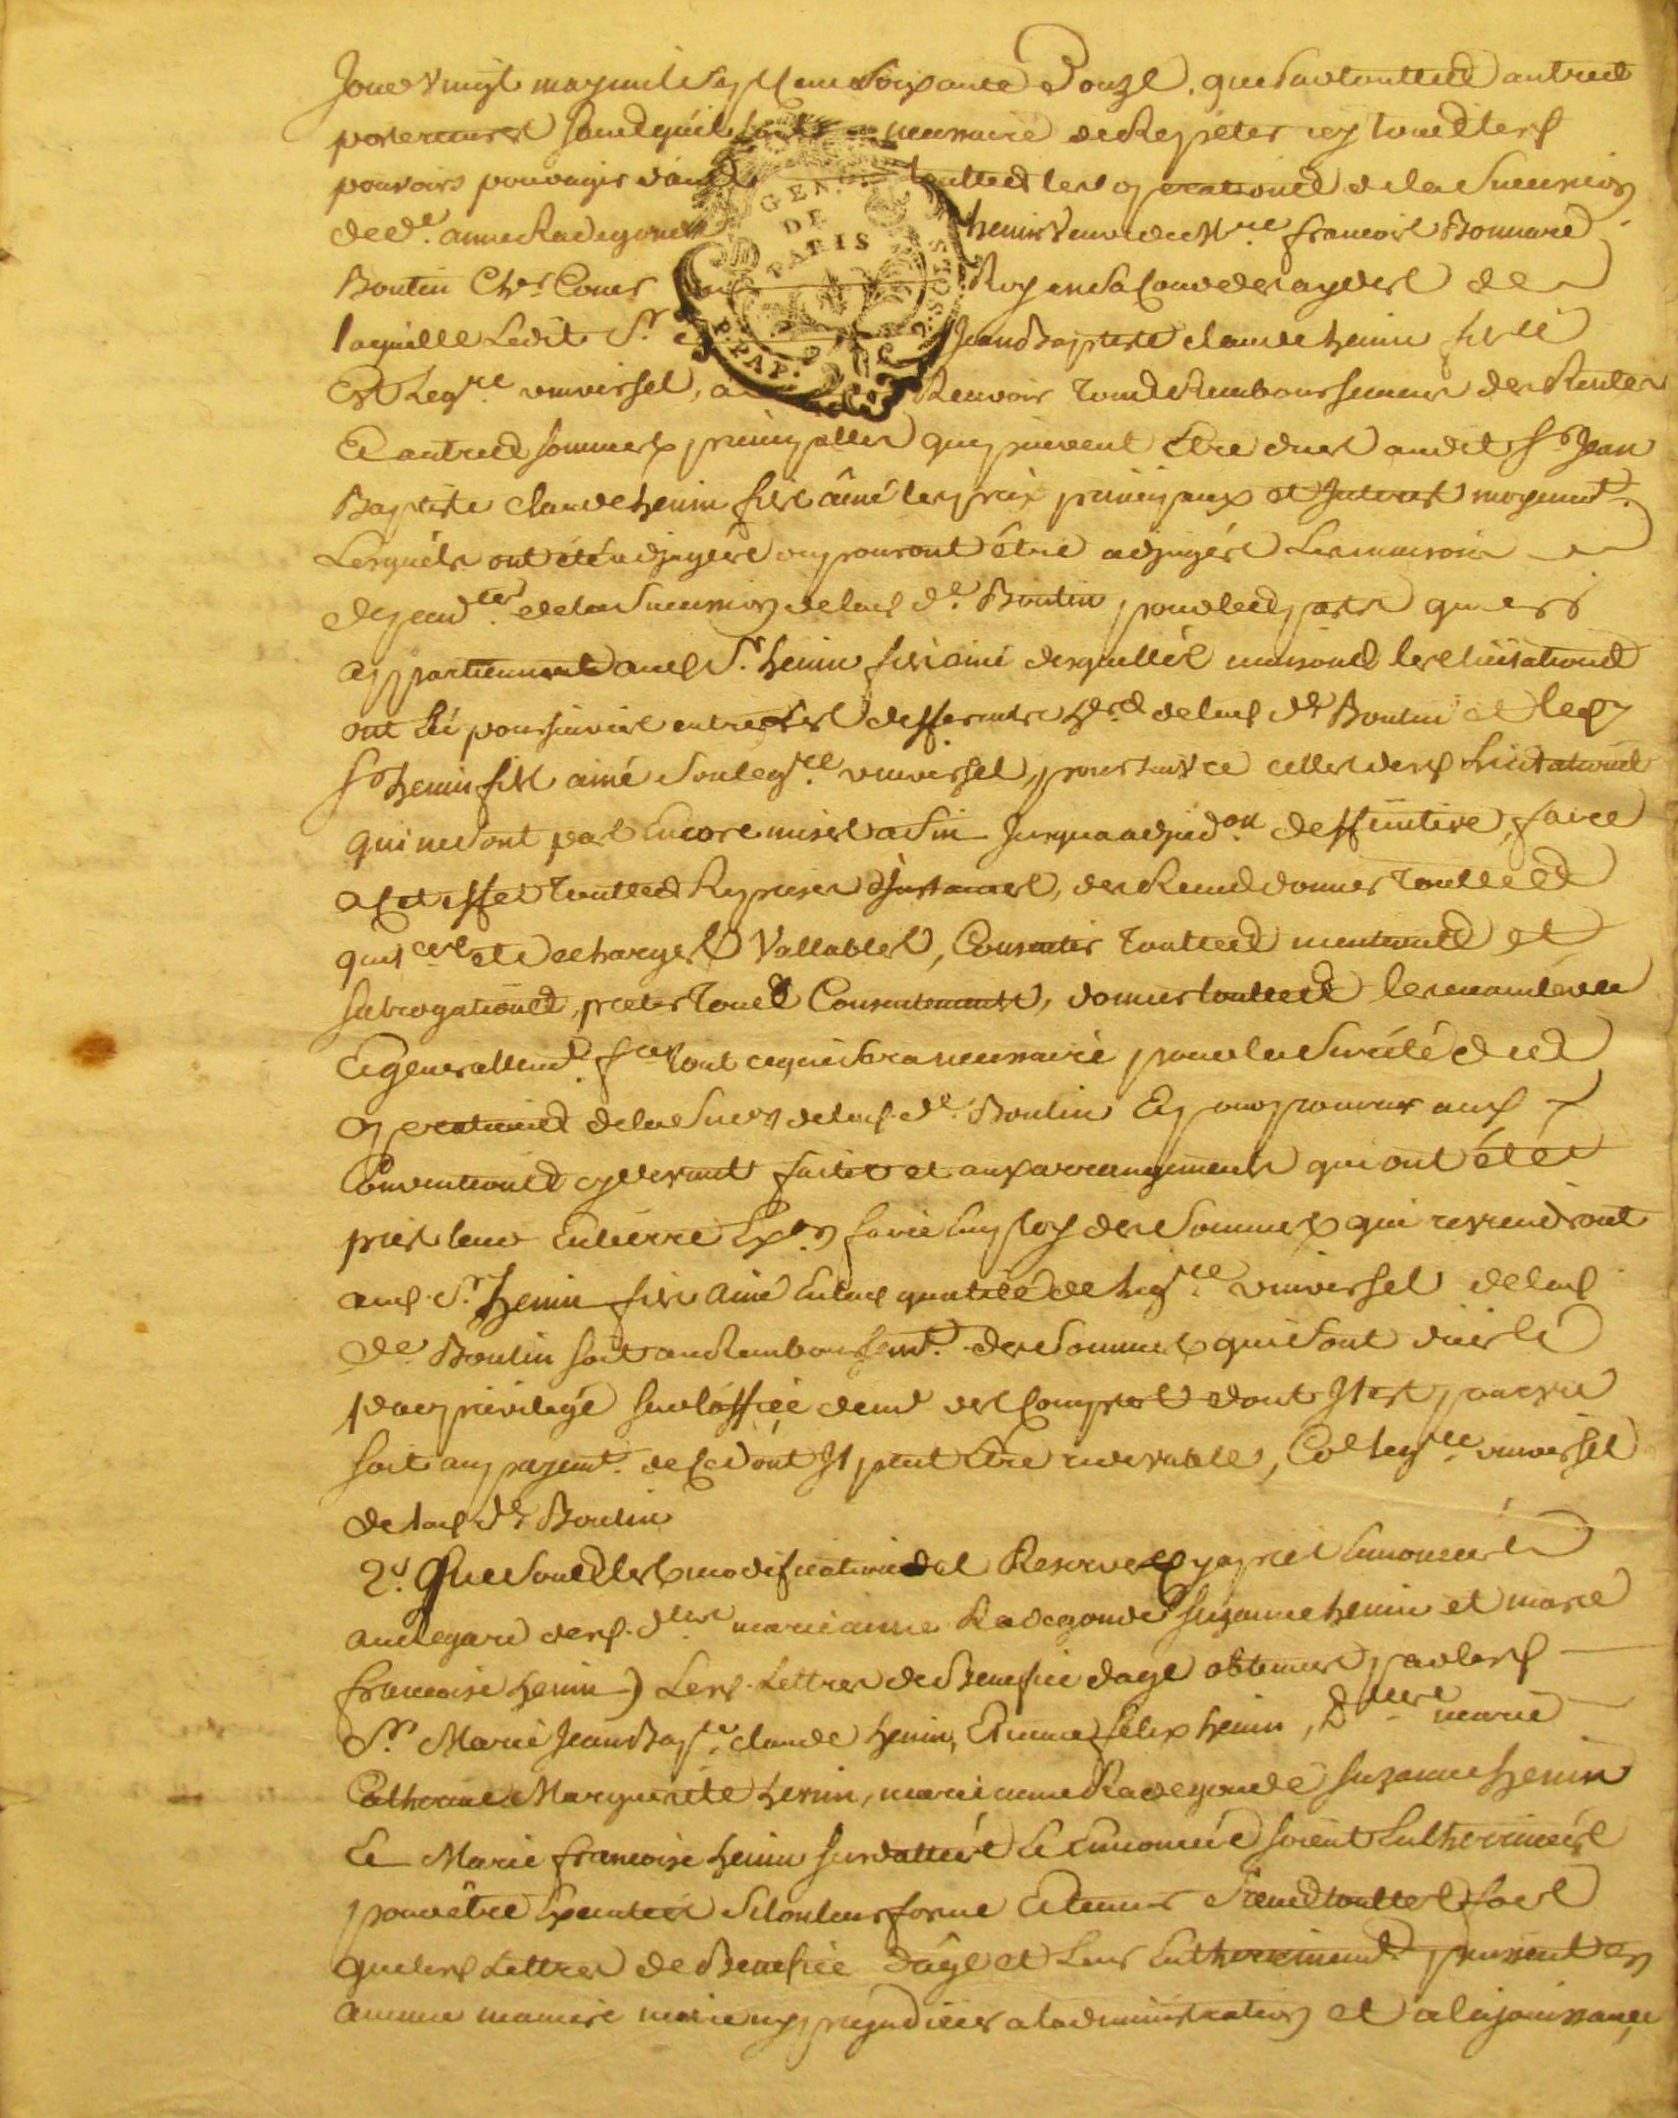 Jour Vingt may mil sept cent soixante Douze, que sur touttes autres
poursuittes sans qu'il soit necessaire de Repeter icy tous lesd
pouvoirs pour agir dans touttes les operations de la Succession
de de. anne Radegonde henin Veuve de Mre. francois Bonnard
Boutin Cher. Coner du Roy en sa Cour des aydes de
laquelle Ledit Sr Jean Baptiste claude henin fils
Est Legre universel, a Recevoir Tous Remboursemens des Rentes
Et autres sommes principalles quy peuvent Etre dues audit Sr. Jean
Baptiste claude henin fils aîné les prix principaux et Interests moyennt.
Lesquels ont été adjugées ou pouront être adjugés Les maisons
dependtes. de la Succession de lad de. Boutin, pour les parts qui
appartiennent aud Sr. henin fils ainé desquelles maisons les licitations
ont été poursuivies entre les differents de lad de Boutin et led
Sr henin fils ainé Son legre. universel, poursuivre celles desd licitations
qui ne sont pas Encore mises a fin Jusqu'a adjudon. deffinitive, faire
a cet effet touttes Reprises d'Instances, des Reçus donner touttes
quitces. et decharges Vallables, Consentir touttes mentions et
subrogations, preter tous Consentements, donner touttes les mainlevées
Et generallemt. fre tout ce qui sera necessaire pour la sureté des
operations de la Succon de lad. de. Boutin Et pour parvenir aux
Conventions cydevant faites et aux arrangements qui ont été
pris leur Entierre Exon faire Employ des Sommes qui reviendront
aud. Sr. henin fils ainé En lad qualité de Legre. universel de lad
de. Boutin soit au Remboursemt. des Sommes qui sont dues
par privilege sur l'office de des Comptes dont Il est pourvu
soit au payemt. de ce dont Il peut Etre redevable, Coe legre. universel
de lad de Boutin
2°. Que sous les modifications et Reserves cy apres Enoncées
au regard desd. dlles marie anne Radegonde Suzanne henin et marie
francoise henin) Lesd. Lettres de Benefice d'age obtenues par lesd
Srs Marie Jean Bapte. claude henin, Etienne felix henin, Dlles marie
Catherine Marguerite henin, marie anne Radegonde Suzanne henin
Et Marie francoise henin susdattées et Enoncées soient Enthérinées
pour être Executées Selon leur forme Et teneur Sans touttes fois
que lesd Lettres de Benefice d'âge et leur Entherinement puissent en
aucune maniere nuire ny prejudicier a l'administration et a la jouissance
GEN. DE PARIS
P. PAP. 2. SOLS